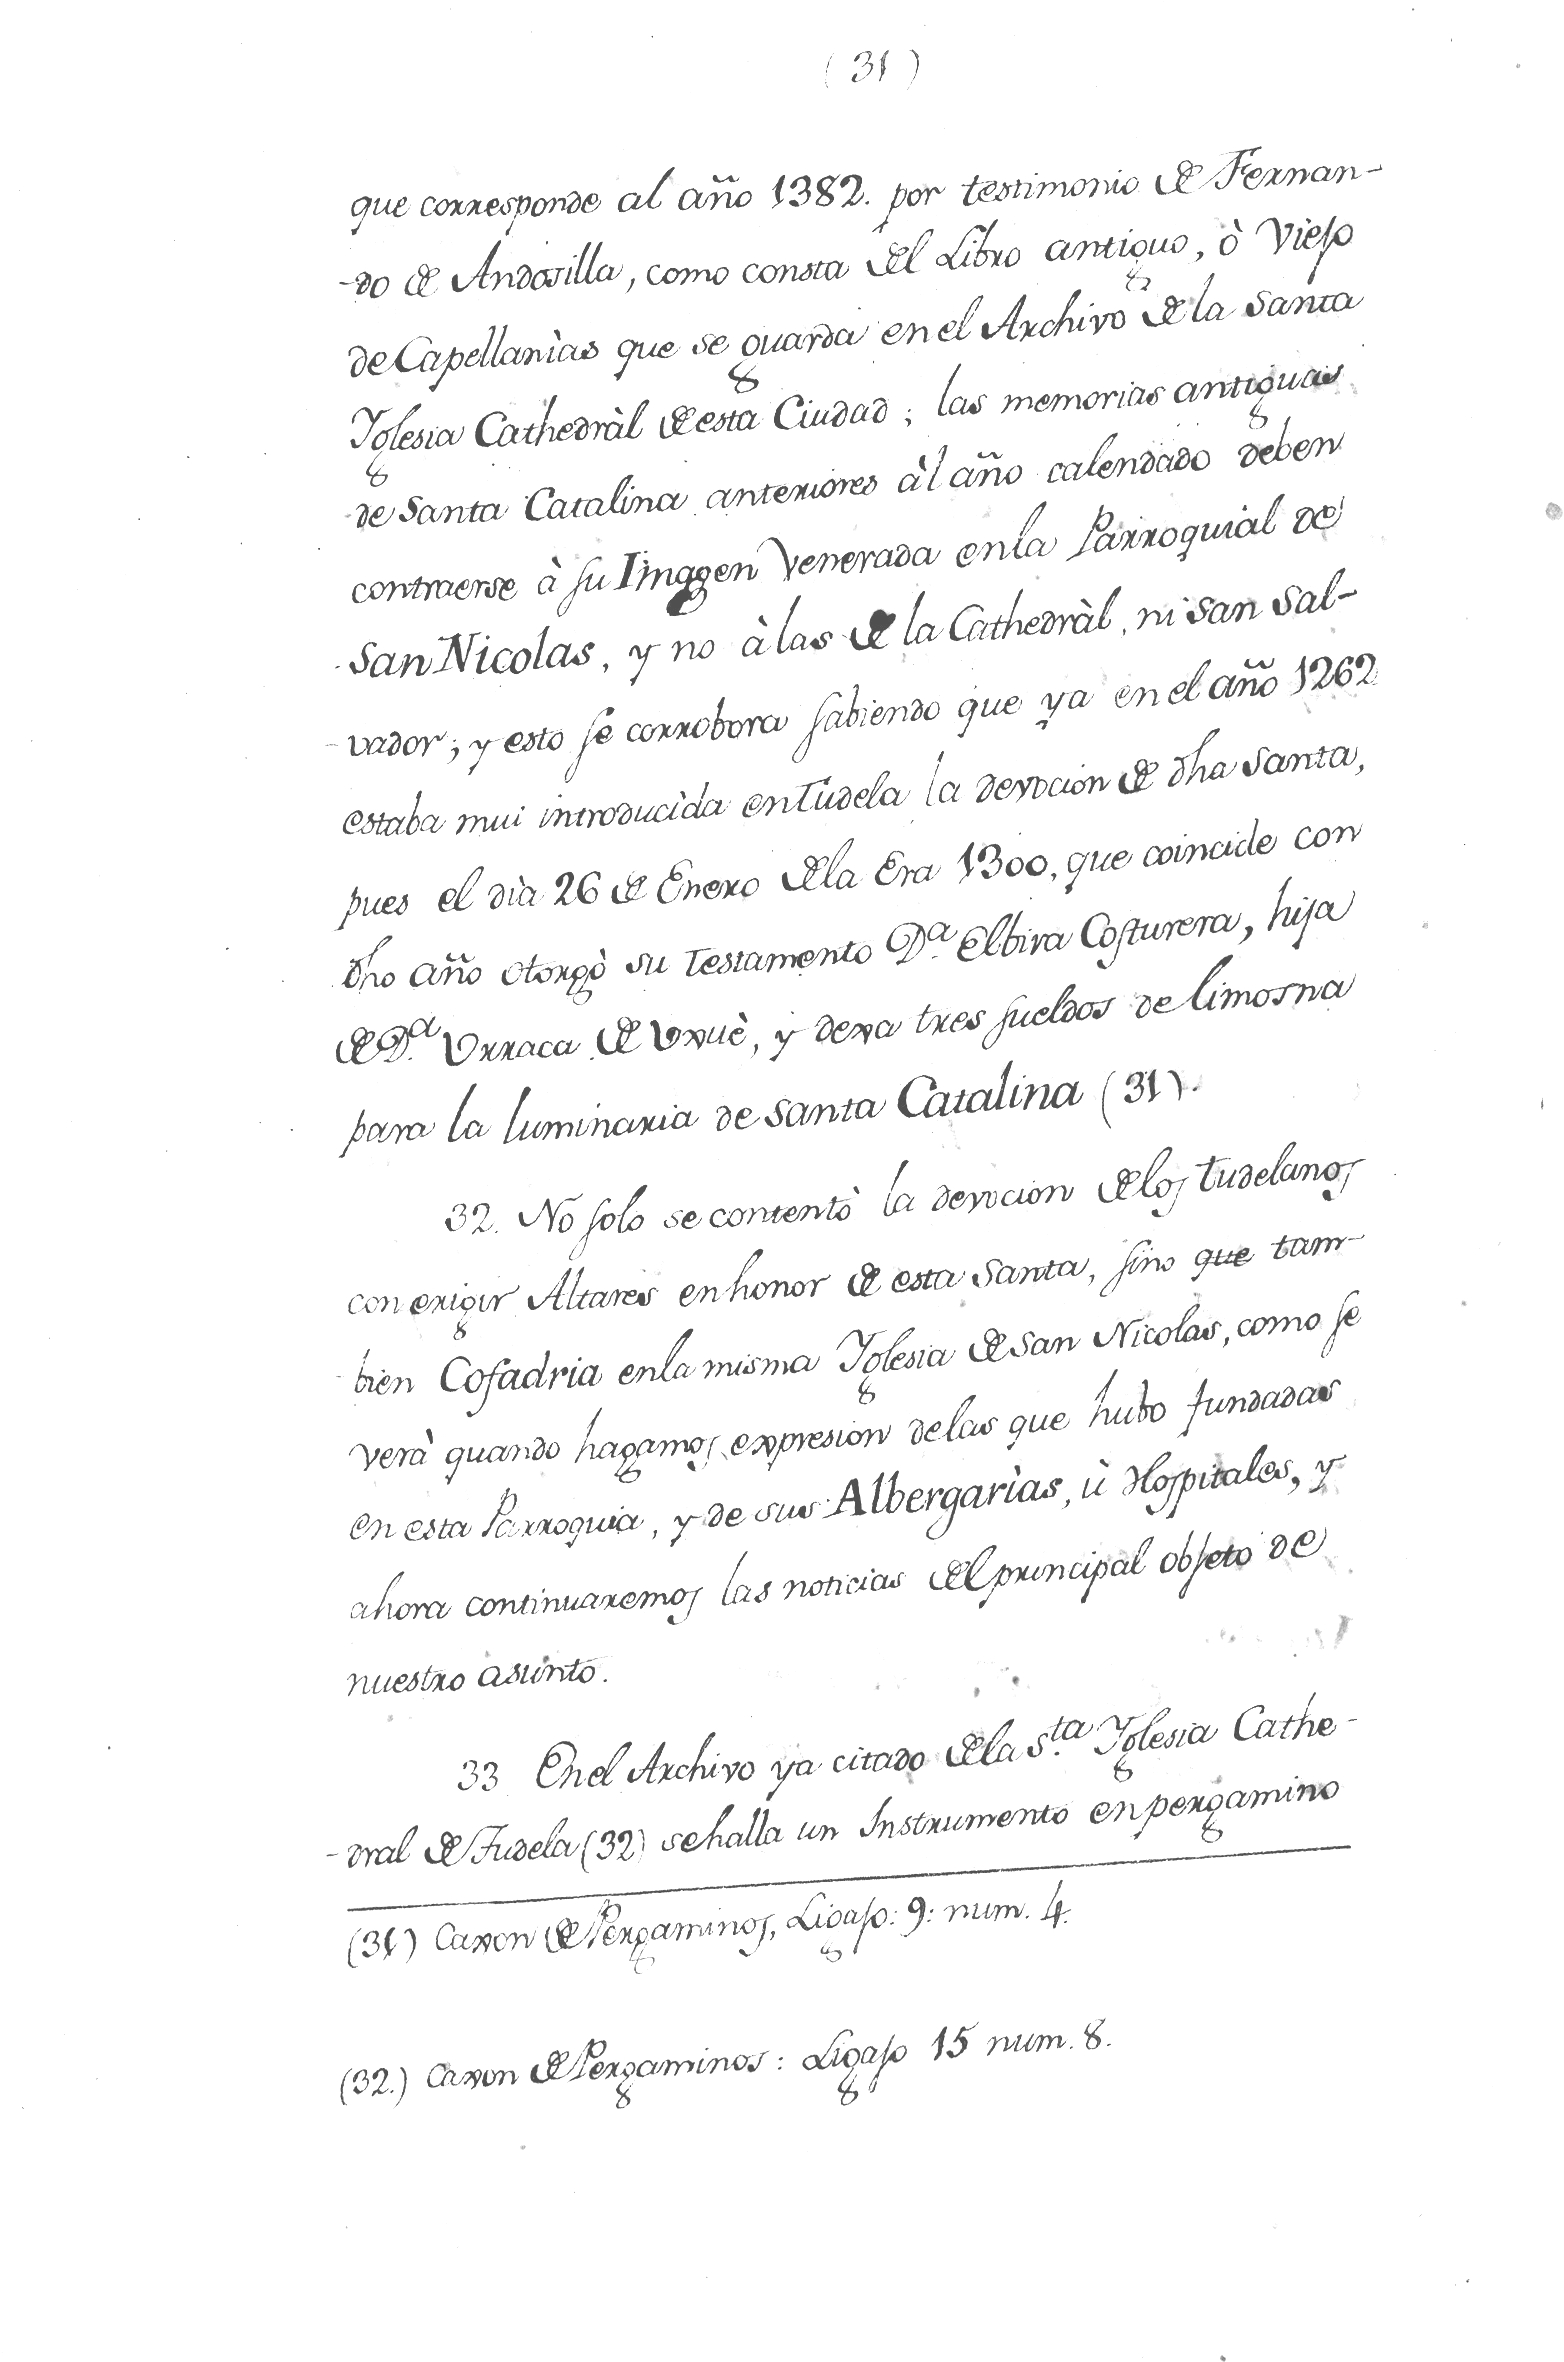 (31)
que corresponde al año 1382. por testimonio de Fernan-
-do de Andosilla, como consta del Libro antiguo, ò Viejo
de Capellanìas que se guarda en el Archivo de la Santa
Yglesia Cathedràl de esta Ciudad; las memorias antiguas
de Santa Catalina anteriores àl año calendado deben
contraerse à su Imagen Venerada en la Parroquial de
San Nicolas, y no à las de la Cathedràl, ni San Sal-
-vador; y esto se corrobora sabiendo que ya en el año 1262
estaba mui introducìda en Tudela la devocion de dha Santa,
pues el dìa 26 de Enero de la Era 1300, que coincide con
dho año otorgò su Testamento D.ª Elbira Costurera, hija
de D.ª Urraca de Uxuè, y dexa tres sueldos de limosna
para la luminaria de Santa Catalina (31).
32. No solo se contentò la devocion de los Tudelanos
con erigir Altares en honor de esta Santa, sino que tam-
bien Cofadria en la misma Yglesia de San Nicolas, como se
verà quando hagamos expresion de las que hubo fundadas
en esta Parroquia, y de sus Albergarìas, ù Hospitales, y
ahora continuaremos las noticias del principal objeto de
nuestro asunto.
33 En el Archivo ya citado de la S.ta Yglesia Cathe-
-dral de Tudela (32) se halla un Instrumento en pergamino
(31) Caxon de Pergaminos, Ligajo: 9: num. 4.
(32.) Caxon de Pergaminos: Ligajo 15 num. 8.